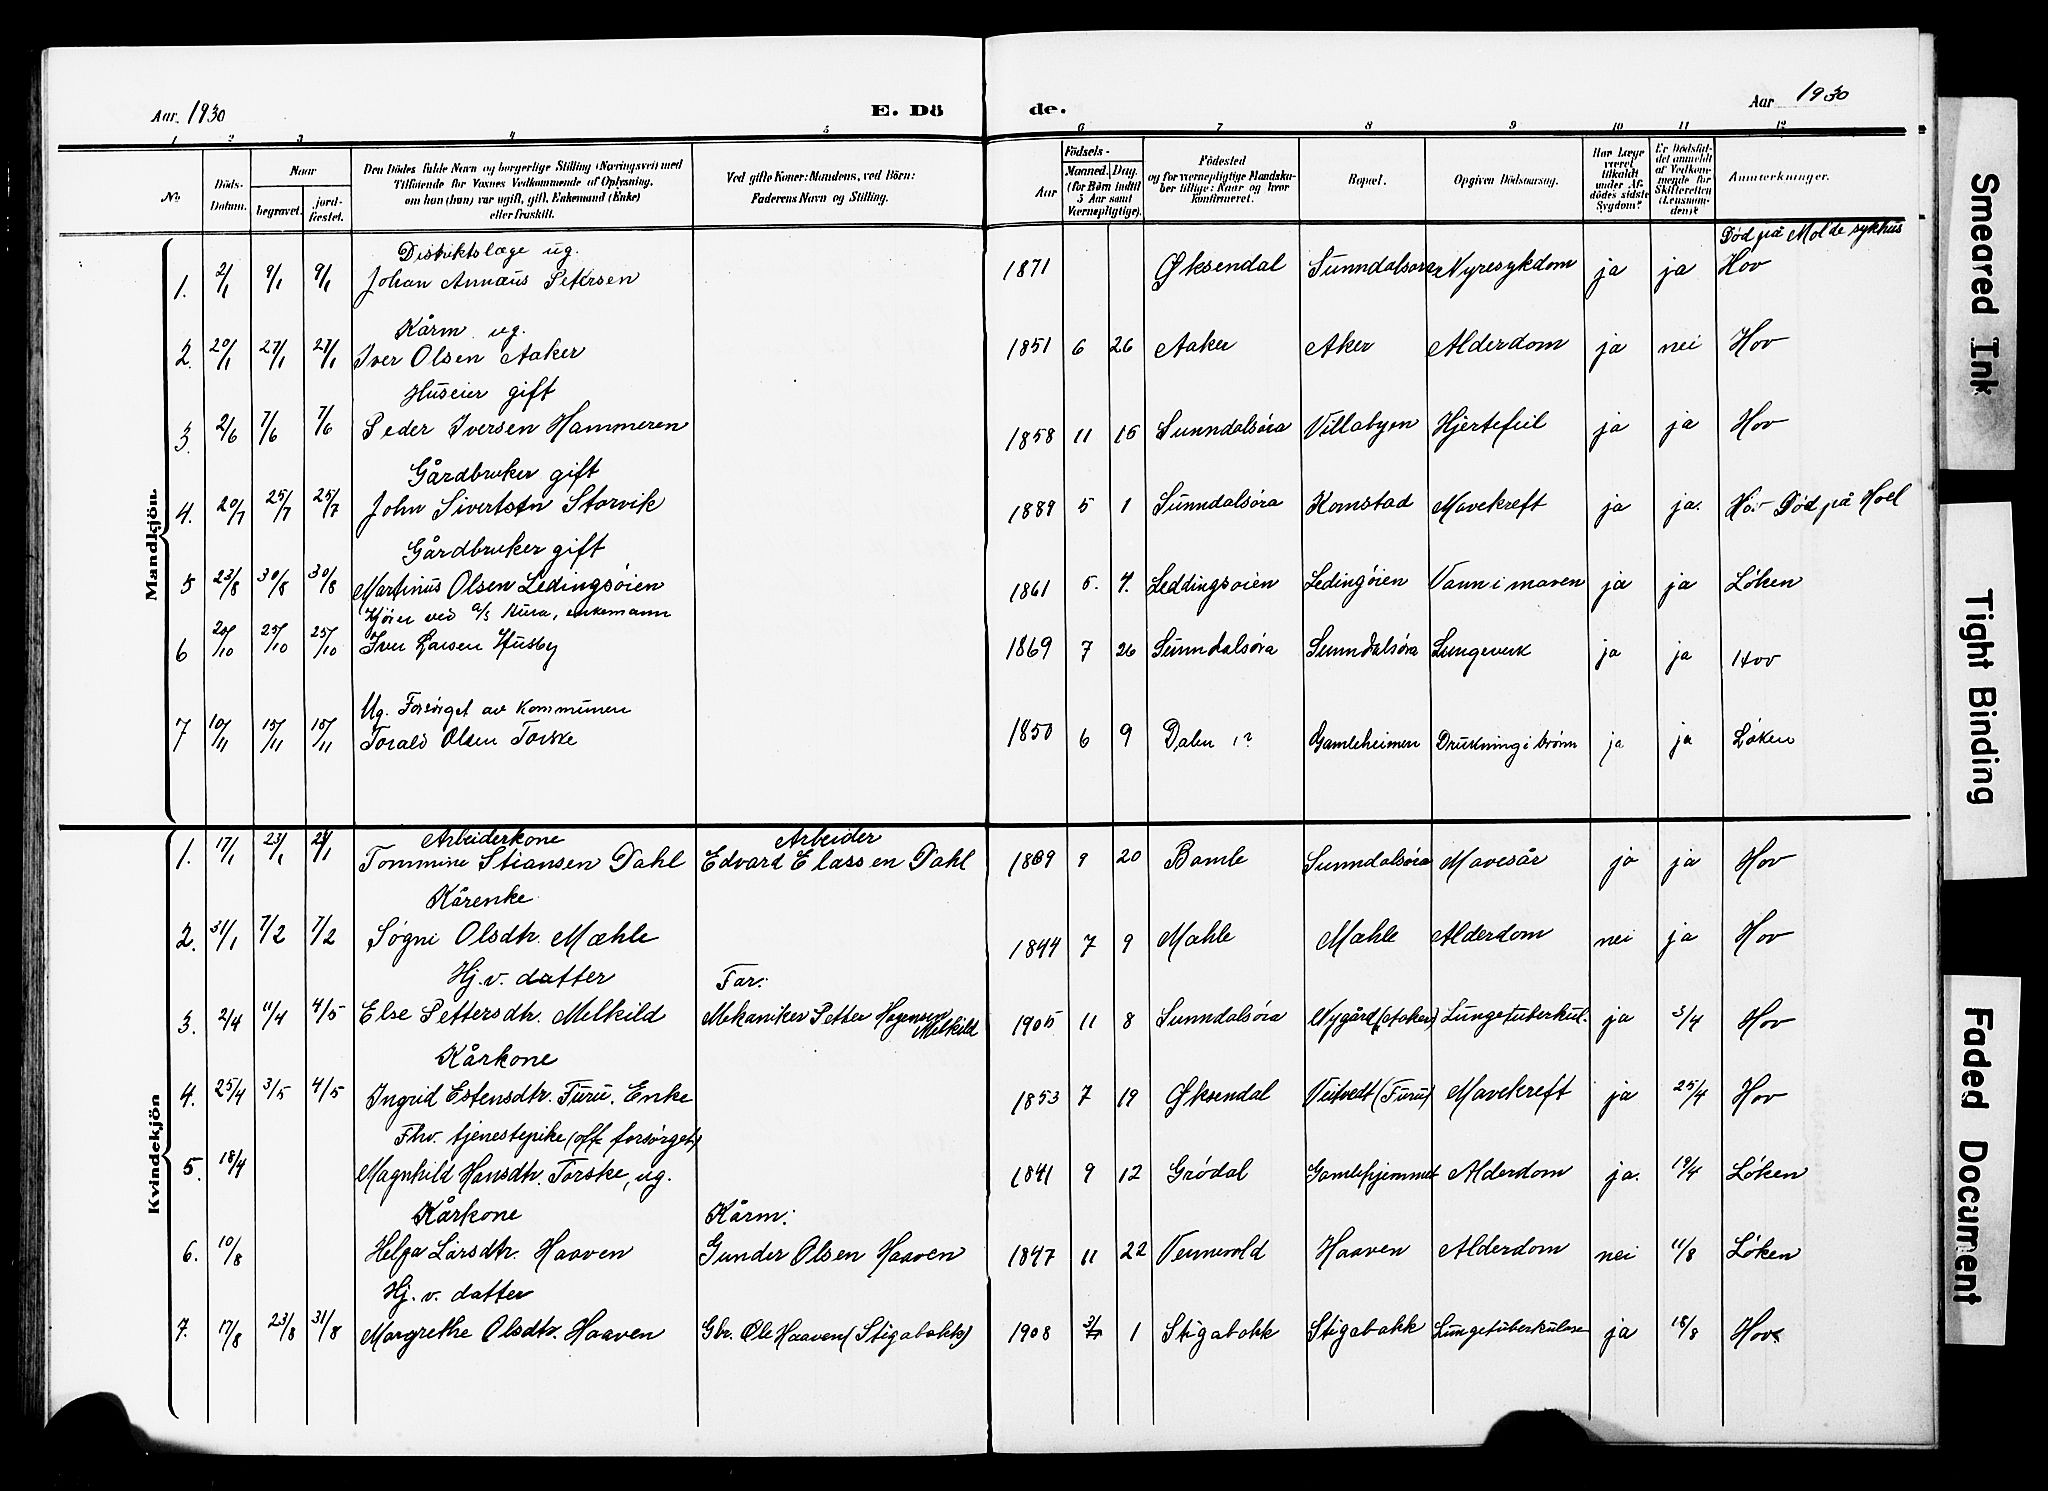 Aar 1930
E. Döde.
Aar 1930
1 2 3 4 5 6 7 8 9 10 11 12
No.
Döds-Datum.
Naar
begravet.
jordfæstet.
Den Dödes fulde Navn og borgerlige Stilling (Næringsvei) med Tilföiende for Voxnes Vedkommende af Oplysning, om han (hun) var ugift, gift, Enkemand (Enke) eller fraskilt.
Ved gifte Koner: Mandens, ved Börn: Faderens Navn og Stilling.
Födsels-
Aar
Maaned. Dag.
(for Börn indtil 5 Aar samt Værnepligtige).
Födested og for værnepligtige Mandskaber tillige: Naar og hvor konfirmeret.
Bopæl.
Opgiven Dödsaarsag.
Har Læge været tilkaldt under Afdödes sidste Sygdom?
Er Dödsfaldet anmeldt af Vedkommende for Skifteretten (Lensmanden)?
Anmerkninger.
Mandkjön.
Distriktslæge ug. Død på Molde sykhus
1. 2/1 9/1 9/1 Johan Annæus Petersen 1871 Øksendal Sunndalsøra Nyresykdom ja ja Hov
Kårm. ug.
2. 20/1 27/1 27/1 Iver Olsen Aaker 1851 6 26 Aaker Aker Alderdom ja nei Hov
Huseier gift
3. 2/6 7/6 7/6 Peder Iversen Hammeren 1858 11 15 Sunndalsøra Villabyen Hjertefeil ja ja Hov
Gårdbruker gift
4. 20/7 25/7 25/7 John Sivertsen Storvik 1889 5 1 Sunndalsøra Komstad Mavekreft ja ja. Hov Død på Hoel
Gårdbruker gift
5 23/8 30/8 30/8 Martinus Olsen Ledingsøien 1861 5. 4. Leddingsøien Ledingøien Vann i maven ja ja Løken
Kjører ved A/S Aura, enkemann
6 20/10 25/10 25/10 Iver Larsen Husby 1869 7 26 Sunndalsøra Sunndalsøra Lungeverk ja ja Hov
Ug. Forsørget av kommunen
7 10/11 15/11 15/11 Torald Olsen Torske 1850 6 9 Dalen i? Gamleheimen Drukning i brønn ja ja Løken
Kvindekjön
Arbeiderkone Arbeider
1. 17/1 23/1 23/1 Tommine Stiansen Dahl Edvard Elassen Dahl 1869 9 20 Bamle Sunndalsøra Mavesår ja ja Hov
Kårenke
2. 31/1 7/2 7/2 Søgni Olsdtr. Mæhle 1844 7 9 Mæhle Mæhle Alderdom nei ja Hov
Hj. v. datter Far:
3. 2/4 11/4 4/5 Else Pettersdtr. Melkild Mekaniker Petter Hagensen Melkild 1905 11 8 Sunndalsøra Nygård (Aaker) Lungetuberkul. ja 3/4 Hov
Kårkone
4. 25/4 3/5 4/5 Ingrid Estensdtr. Furu. Enke 1853 7 19 Øksendal Veitvedt (Furu) Mavekreft ja 25/4 Hov
Fhv. tjenestepike (off. forsørget)
5. 18/4 Magnhild Hansdtr. Torske, ug. 1841 9 12 Grødal Gamlehjemmet Alderdom ja. 19/4 Løken
Kårkone Kårm:
6. 10/8 Helga Larsdtr. Haaven Gunder Olsen Haaven 1847 11 22 Vennevold Haaven Alderdom nei 11/8 Løken
Hj. v. datter
7. 17/8 23/8 31/8 Margrethe Olsdtr. Haaven Gbr. Ole Haaven (Stigabakk) 1908 1 Stigabakk Stigabakk Lungetuberkulose ja 18/8 Hov
Smeared Ink
Tight Binding
Faded Document